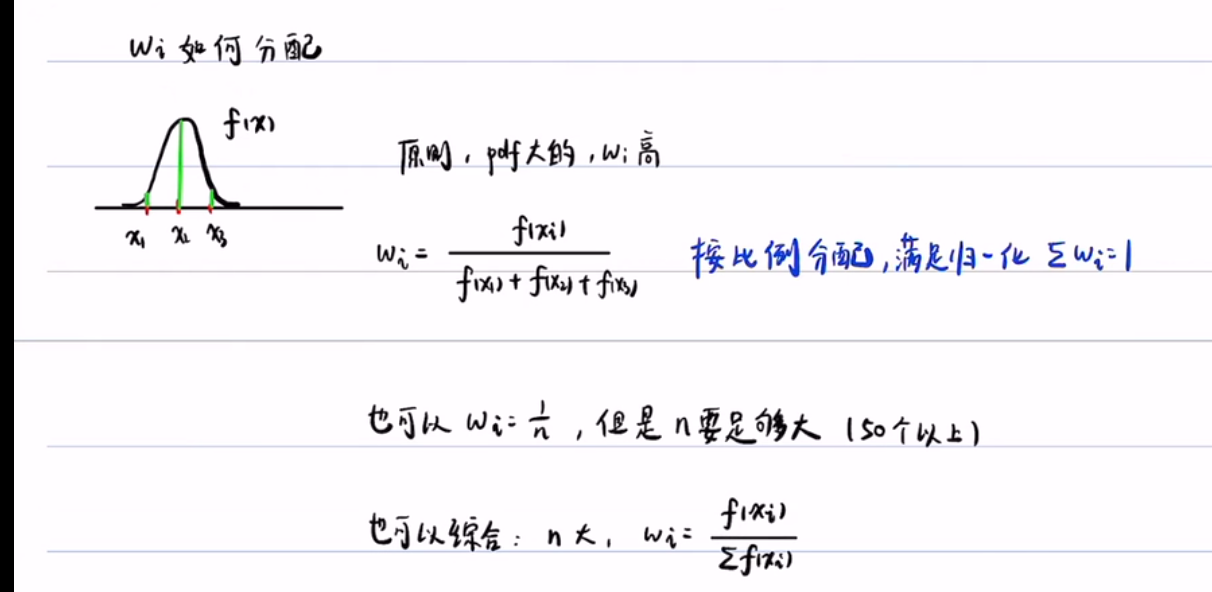 wi如何分配
f(x)
原则，pdf大的，wi高
x1 x2 x3
wi = f(xi) / f(x1) + f(x2) + f(x3)
按比例分配，满足归一化 Σwi=1
也可以 wi = 1/n ，但是n要足够大（50个以上）
也可以综合：n大，wi = f(xi) / Σf(xi)